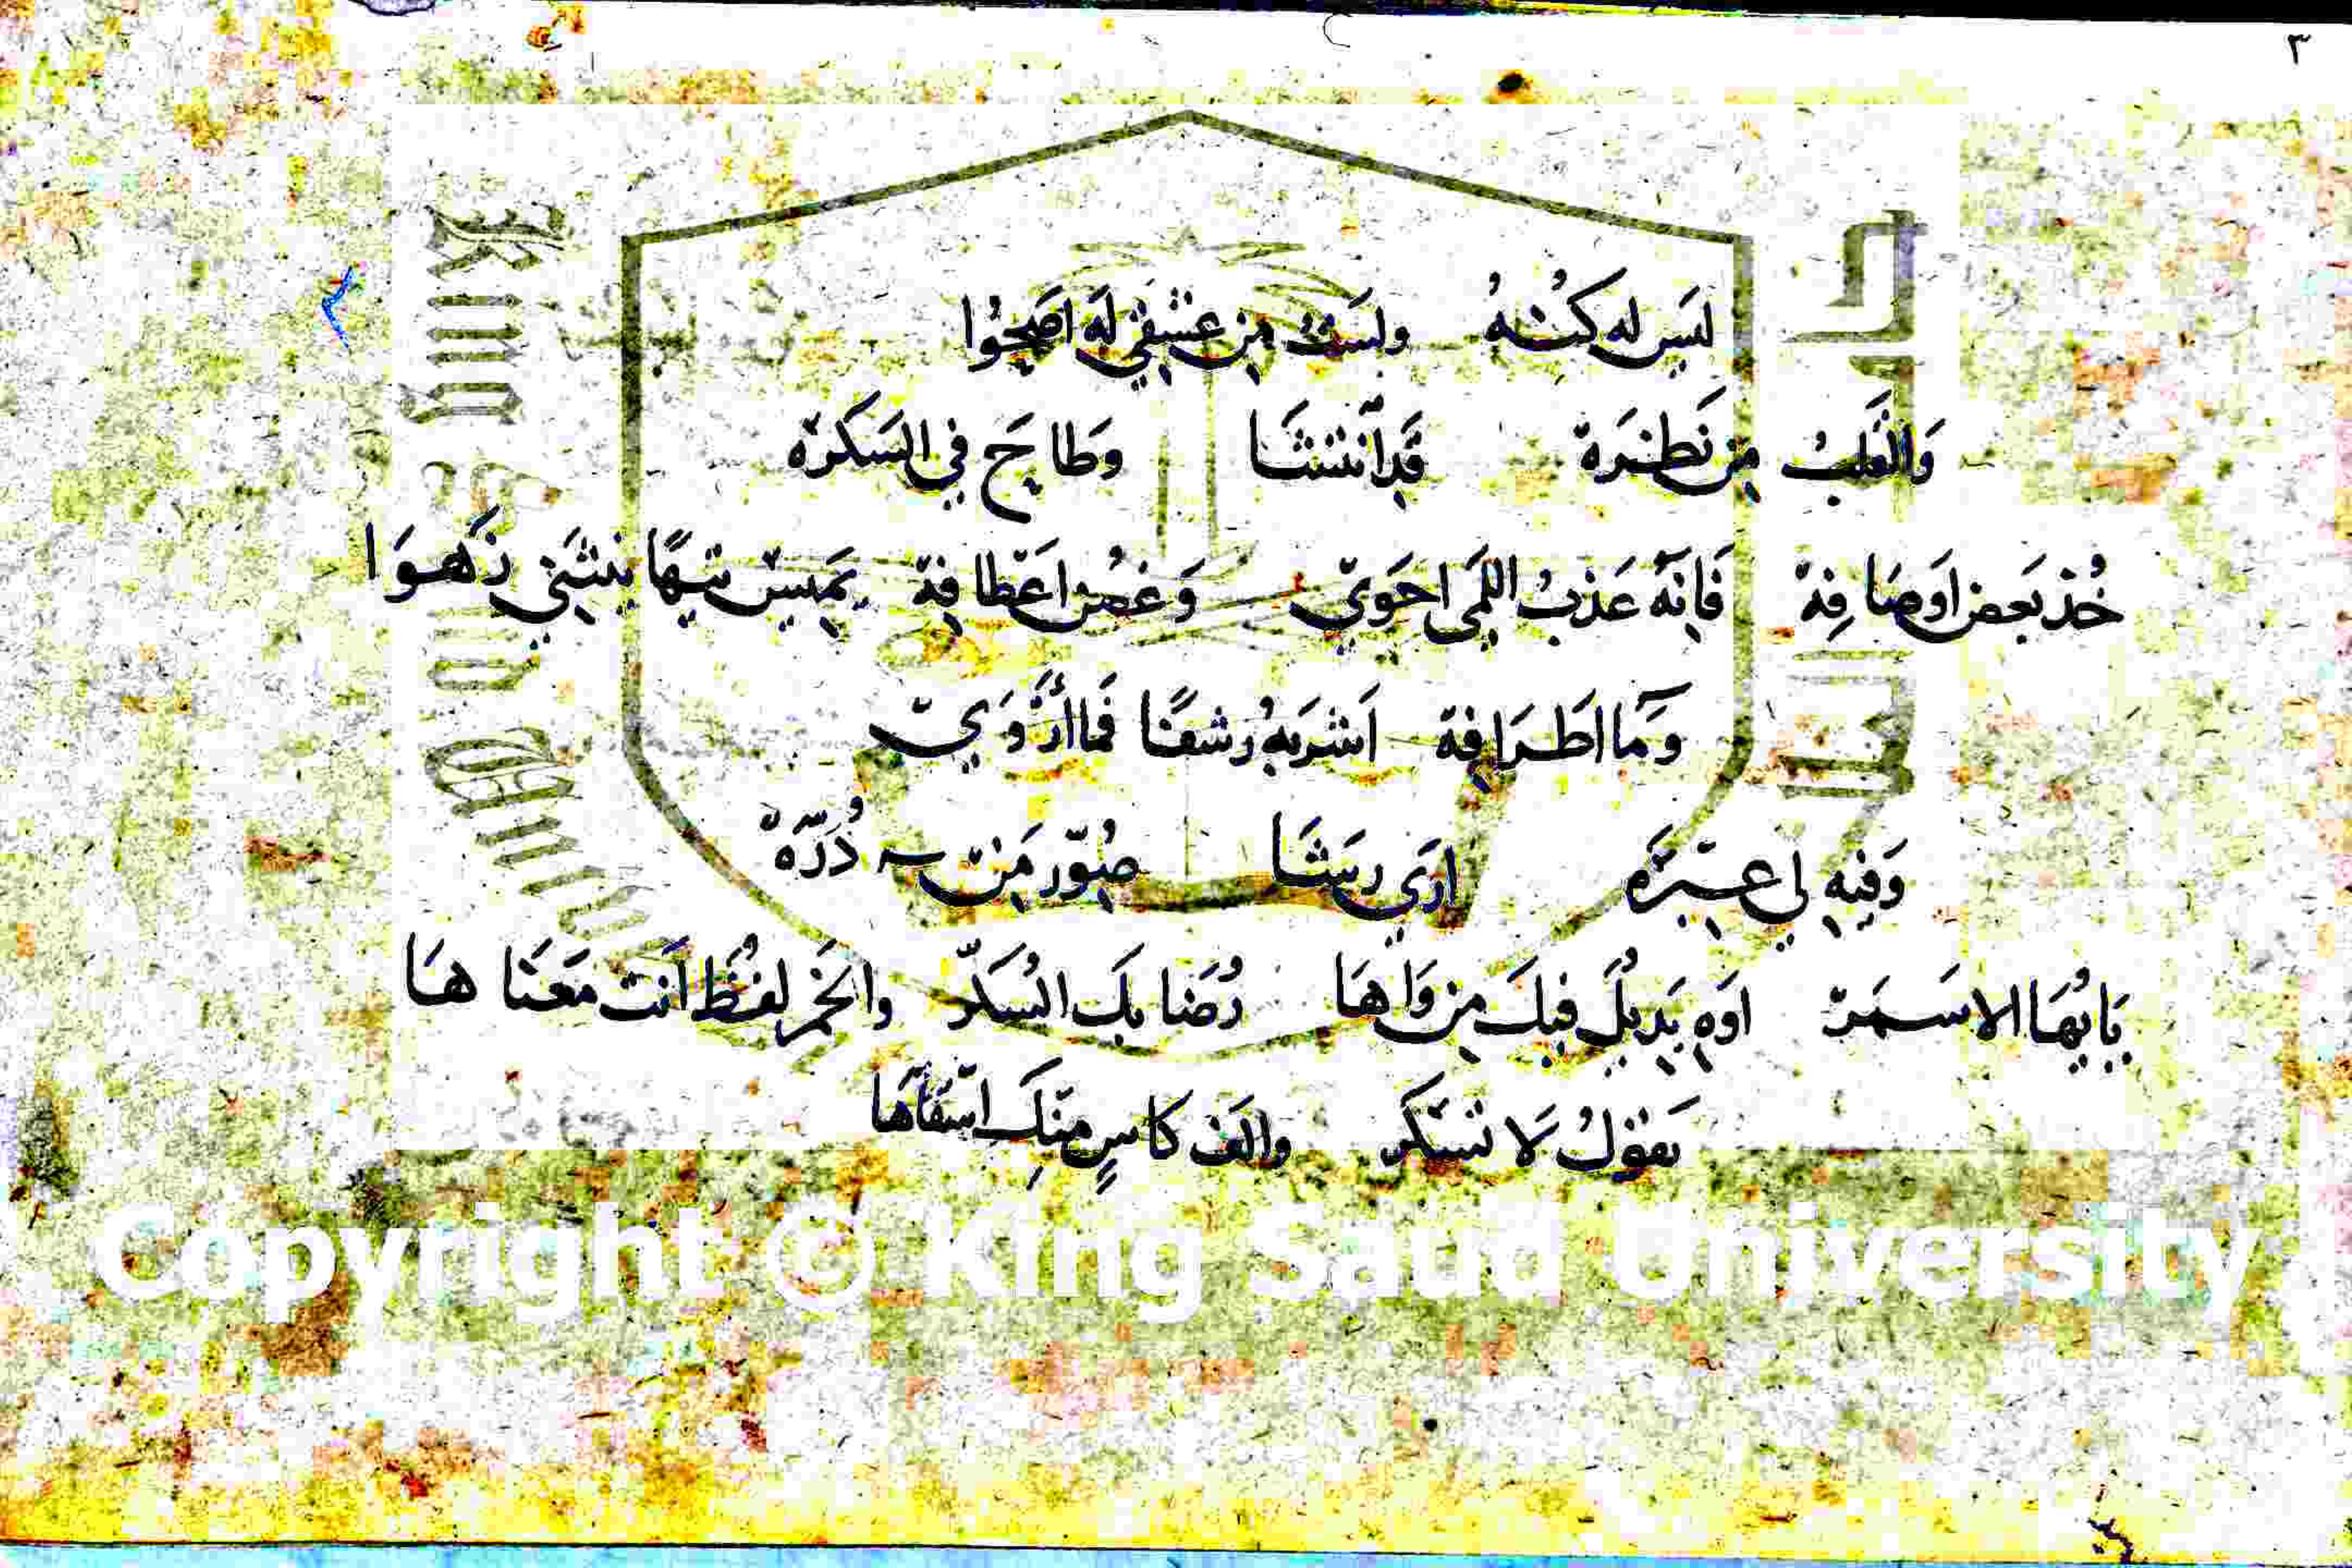 ٣
لَيس له كُنْهُ ولَستُ مِن عِشقي لَهُ اَصحُوا
وَالقَلبُ مِن نَظرَة قَد اَنتشَا وَطاحَ في السَكرَه
خُذ بَعض اَوصَافِهْ فَانِهُ عَذبُ اللمَى احوَيّ وَغصُن اَعَطافِهْ يَميسْ تيهًا ينثَنِي زَهوَا
وَمَا اطَرافِهْ اَشرَبهُ رَشفًا فَما اَرْوَيّ
وَفيهِ لي عِبرَه ارَي رَشَا صُوّر مَن دُرَّهْ
يَايُهَا الاسمَرْ اوَهِ يَدِيلَ فيكَ مِن وَاهَا رُضَابكَ السكّر وَالخَمر لفُظ اَنت مَعنَاهَا
يَقولُ لَا تسَكر والَف كَاسٍ مِنكَ اسقَاهَا
King Saud University
Copyright © King Saud University